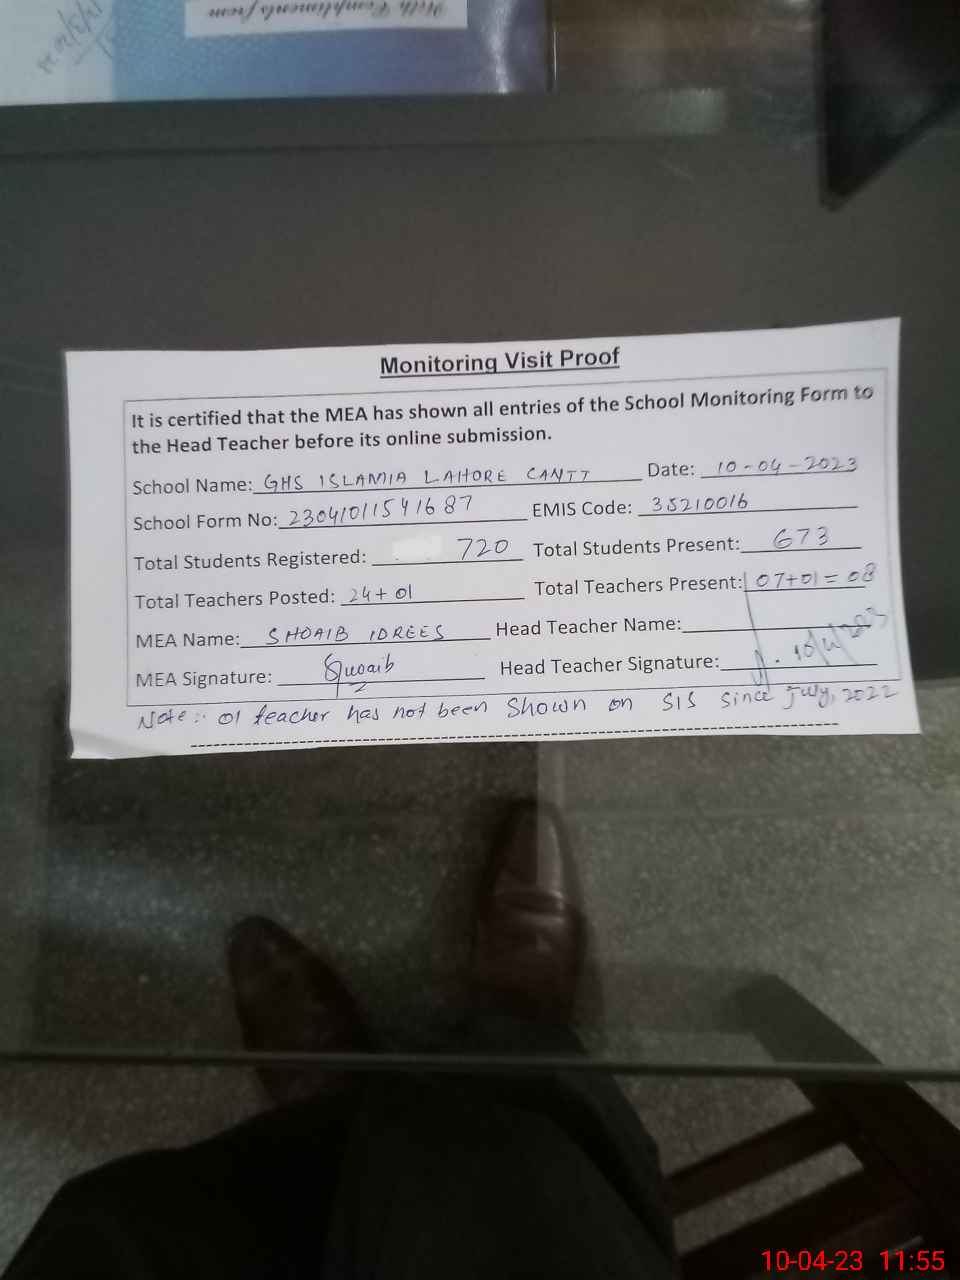 With Compliments from
Monitoring Visit Proof
It is certified that the MEA has shown all entries of the School Monitoring Form to
the Head Teacher before its online submission.
School Name: GHS ISLAMIA LAHORE CANTT Date: 10-04-2023
School Form No: 23041011541687 EMIS Code: 35210016
Total Students Registered: 720 Total Students Present: 673
Total Teachers Posted: 24+01 Total Teachers Present: 07+01=08
MEA Name: SHOAIB IDREES Head Teacher Name:
MEA Signature: Shoaib Head Teacher Signature: 10/4/2023
Note:- 01 teacher has not been shown on SIS since July, 2022
10-04-23 11:55